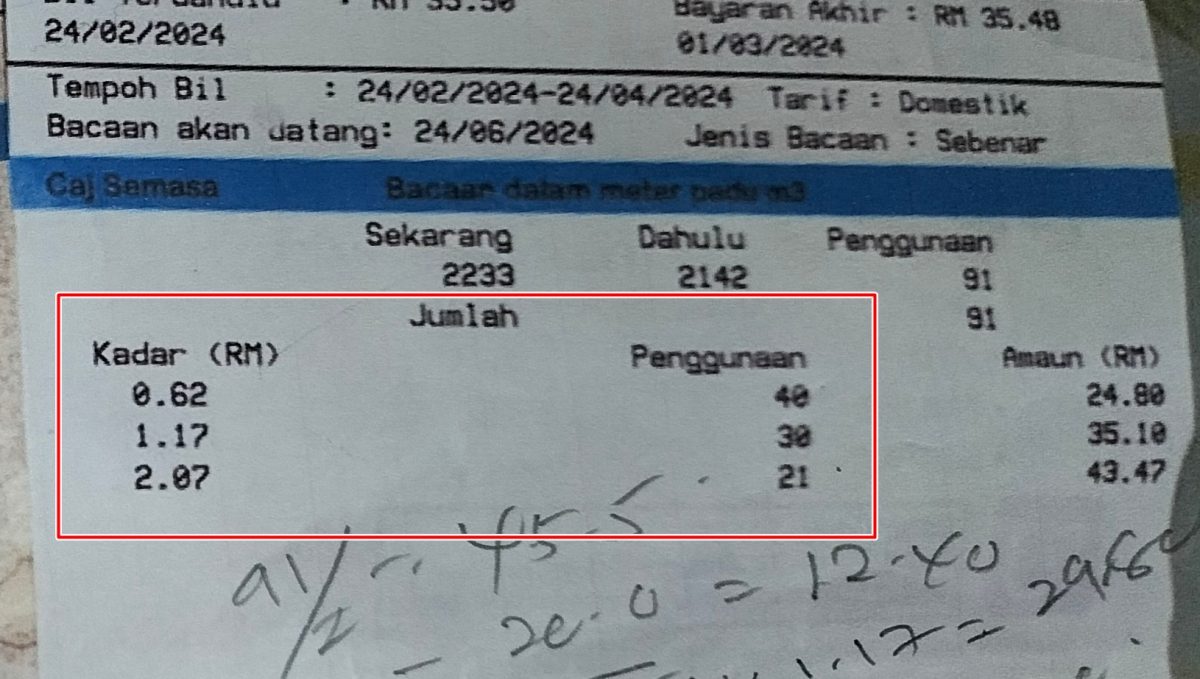 : RM 35.50 Bayaran Akhir : RM 35.48
24/02/2024 01/03/2024
Tempoh Bil : 24/02/2024-24/04/2024 Tarif : Domestik
Bacaan akan datang: 24/06/2024 Jenis Bacaan : Sebenar
Caj Semasa Bacaan dalam meter padu m3
Sekarang Dahulu Penggunaan
2233 2142 91
Jumlah 91
Kadar (RM) Penggunaan Amaun (RM)
0.62 40 24.80
1.17 30 35.10
2.07 21 43.47
91/2 45.5
20.0 = 12.40
1.17 =